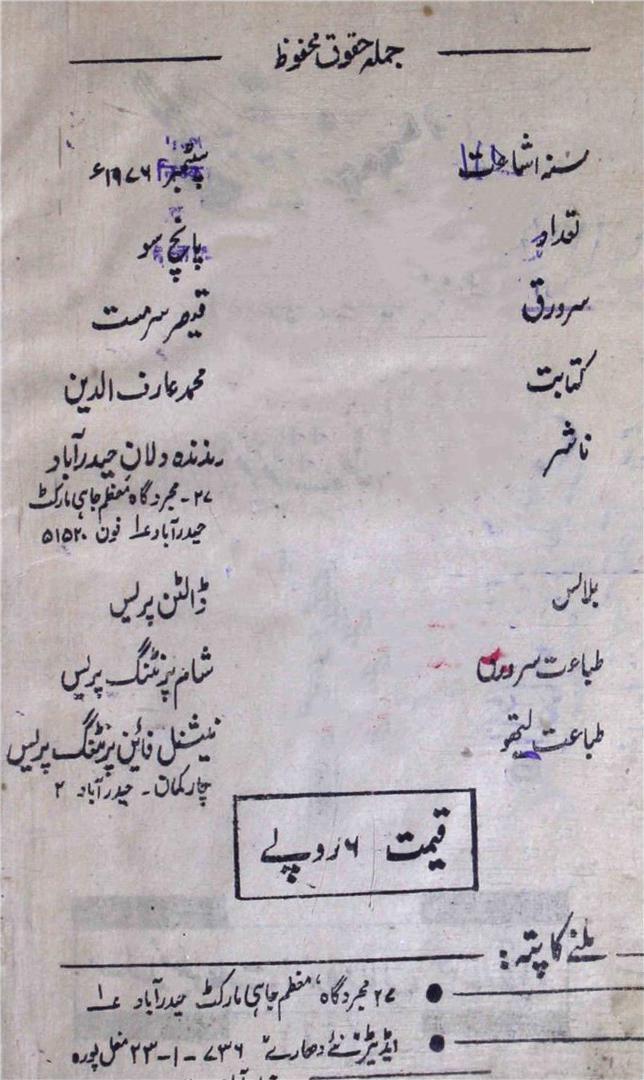 جملہ حقوق محفوظ
سنہ اشاعت ستمبر ۱۹۷۶ء
تعداد پانچ سو
سرورق قیصر سرمست
کتابت محمد عارف الدین
ناشر زندہ دلان حیدرآباد
۲۷ - مجردگاہ معظم جاہی مارکٹ
حیدرآباد ۱ فون ۵۱۵۲۰
بلاکس ڈالٹن پریس
طباعت سرورق شام پرنٹنگ پریس
طباعت لیتھو نیشنل فائین پرنٹنگ پریس
چارکمان ۔ حیدرآباد ۲
قیمت ۶ روپے
ملنے کا پتہ :
● ۲۷ مجردگاہ، معظم جاہی مارکٹ حیدرآباد ۱
● ایڈیٹر "نئے دھارے" ۷۳۶-۱-۲۳ مغل پورہ